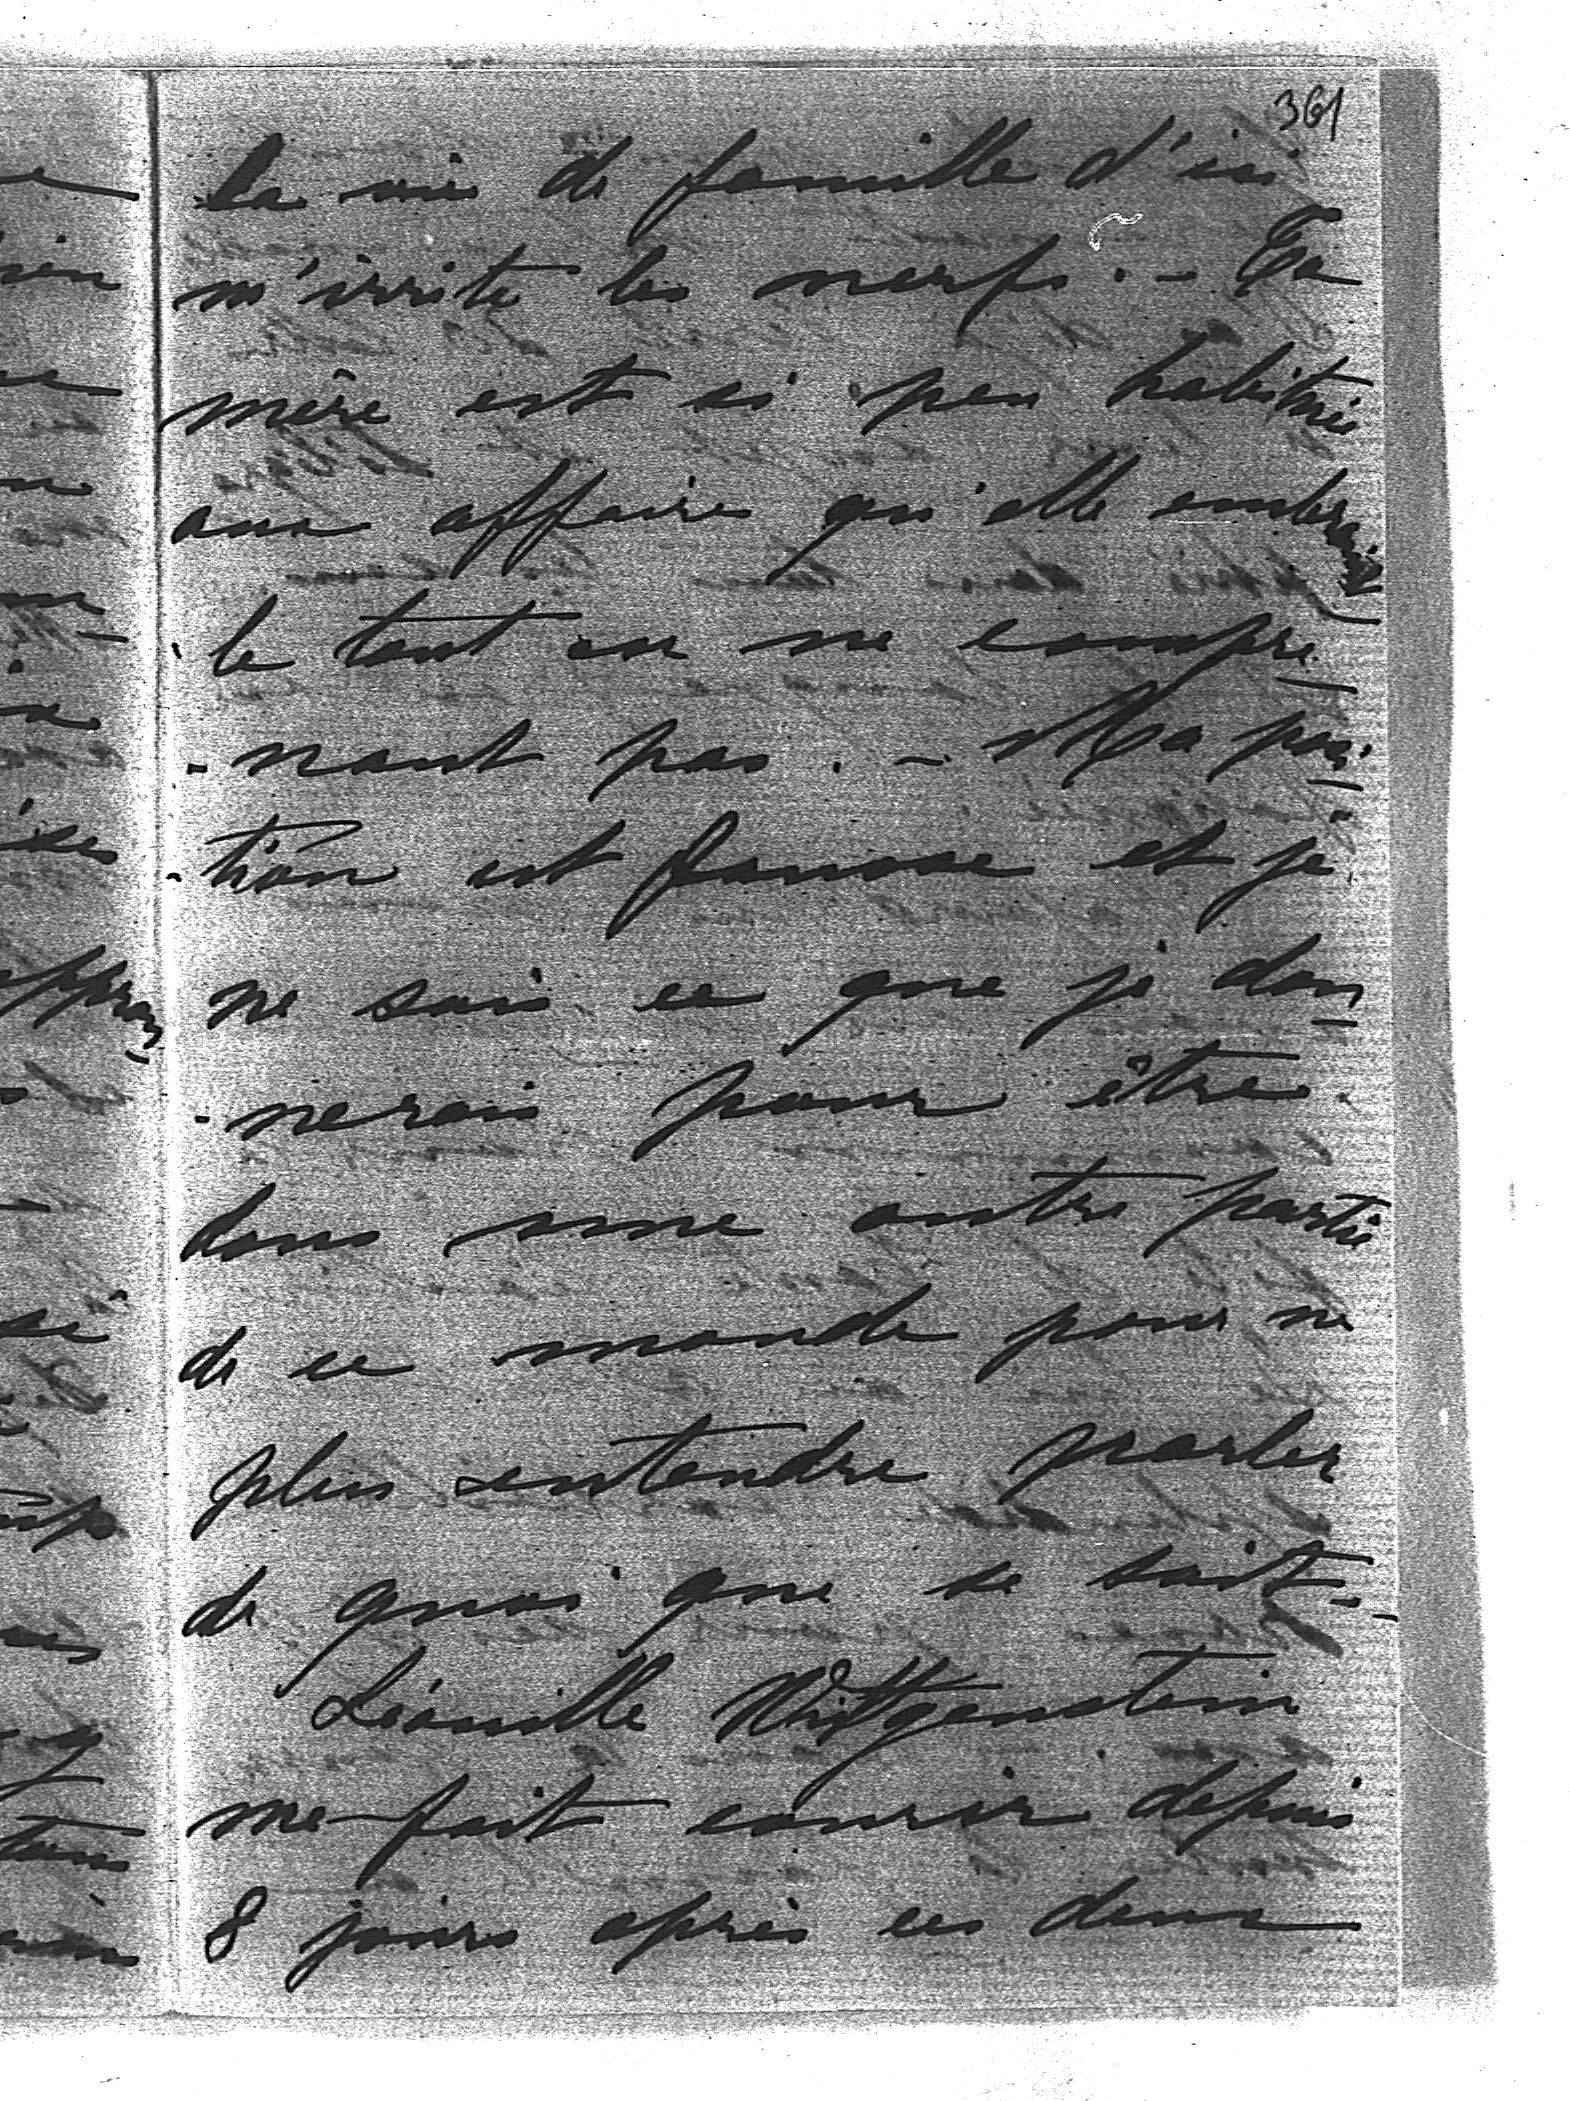 361
la vie de famille d'ici
m'irrite les nerfs. - Ta
mère est si peu habituée
aux affaires qu'elle embrouille
le tout en ne compre-
-nant pas. - Ma posi-
-tion est fausse et je
ne sais ce que je don-
-nerais pour être
dans une autre partie
de ce monde pour ne
plus entendre parler
de quoi que se soit -
Léonille Wittgenstein
me fait courir depuis
8 jours après ces deux